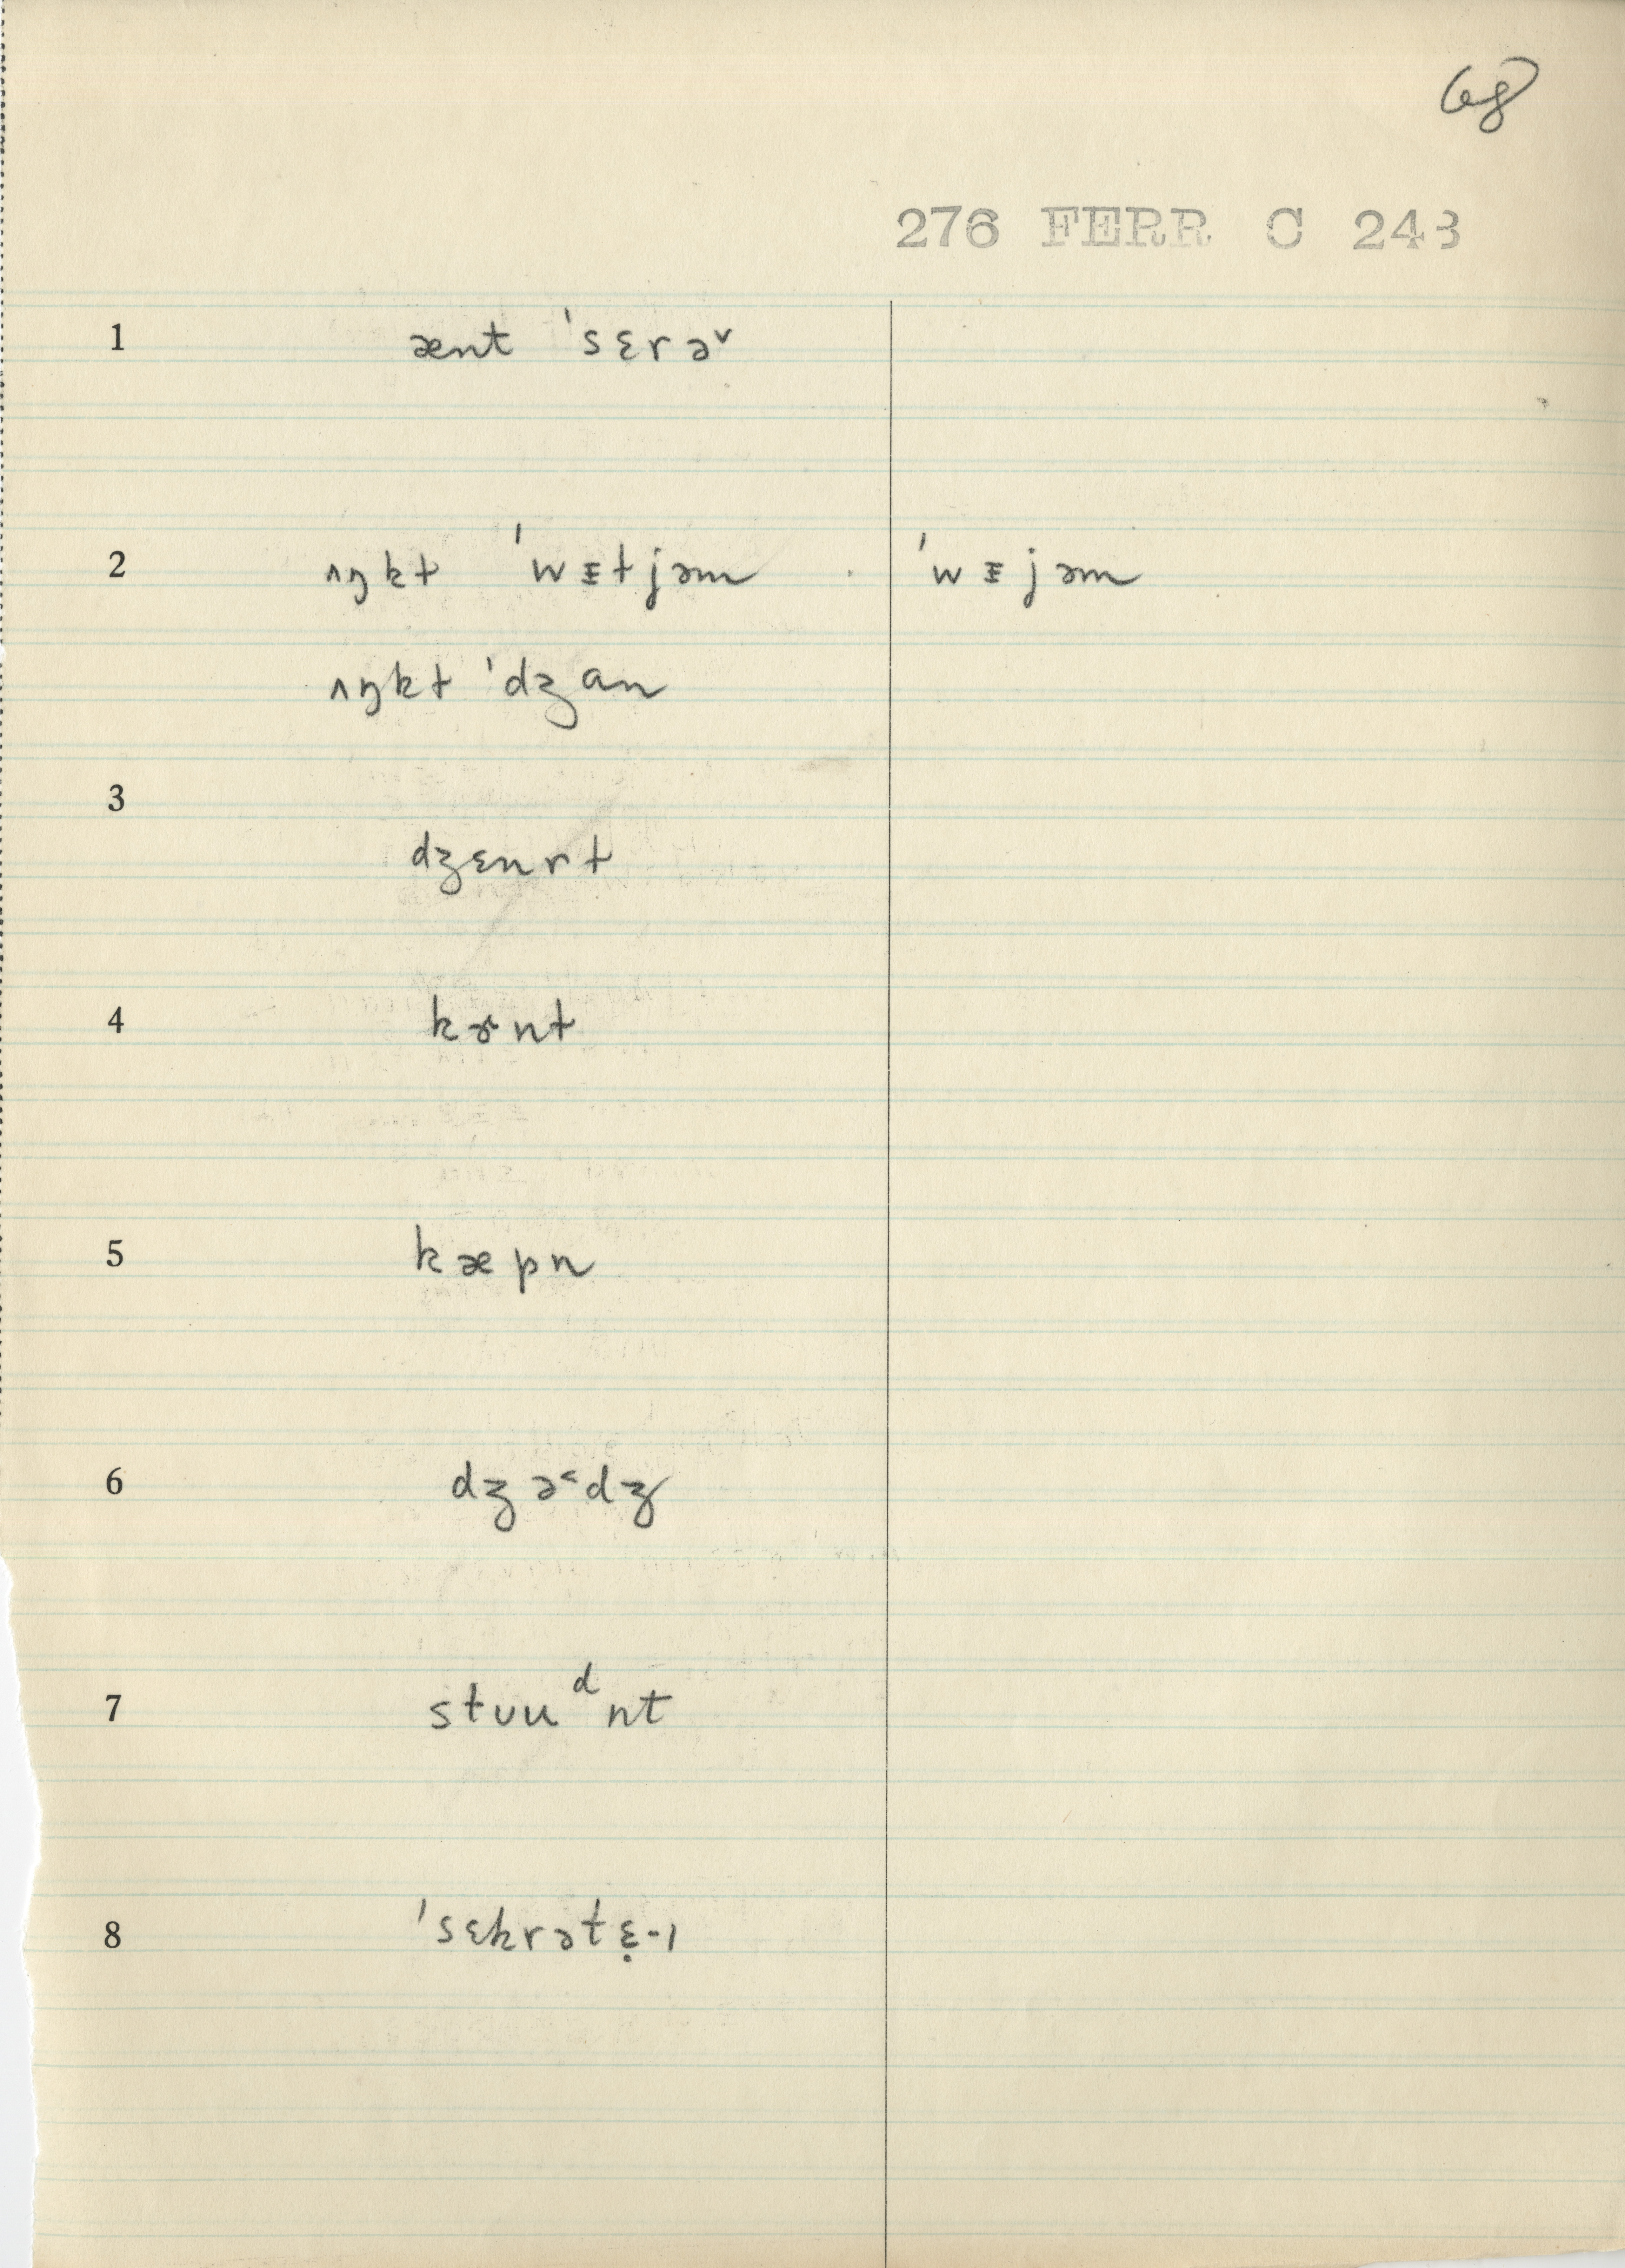 68
276 FERR C 243
1 ænt ˈsɛrə˅
2 ʌŋkt ˈwɪ̵tjəm ˈwɪ̵jəm
ʌŋkt ˈdʒan
3
dʒɛnrt
4 kɚnt
5 kæpn
6 dʒə˂dʒ
7 stʊuᵈnt
8 ˈsɛkrətɛ̣-ɪ